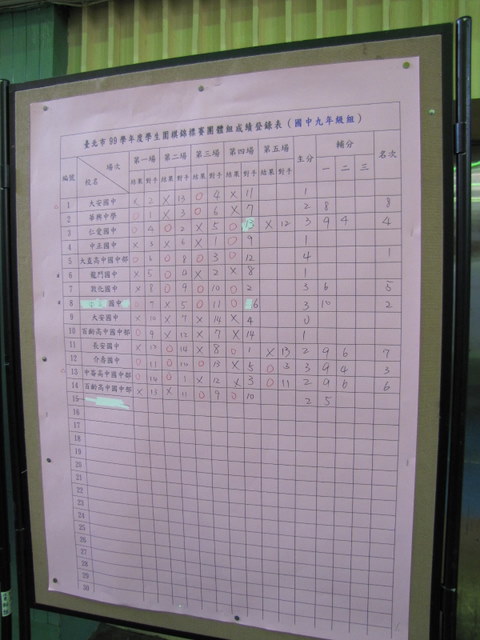 臺北市 99 學年度學生圍棋錦標賽團體組成績登錄表（國中九年級組）
編號 場次 校名 第一場 第二場 第三場 第四場 第五場 主分 輔分 名次
結果 對手 結果 對手 結果 對手 結果 對手 結果 對手 一 二 三
1 大安國中 X 2 X 13 O 4 X 11 1
2 華興中學 O 1 X 3 O 6 X 7 2 8 8
3 仁愛國中 O 4 O 2 X 5 O 13 X 12 3 9 4 4
4 中正國中 X 3 X 6 X 1 O 9 1
5 大直高中國中部 O 6 O 8 O 3 O 12 4 1
6 龍門國中 X 5 O 4 X 2 X 8 1
7 敦化國中 X 8 O 9 O 10 O 2 3 6 5
8 國中 O 7 X 5 O 11 O 6 3 10 2
9 大安國中 X 10 X 7 X 14 X 4 0
10 百齡高中國中部 O 9 X 12 X 7 X 14 1
11 長安國中 X 12 O 14 X 8 O 1 X 13 2 9 6 7
12 介壽國中 O 11 O 10 O 13 X 5 O 3 3 9 4 3
13 中崙高中國中部 O 14 O 1 X 12 X 3 O 11 2 9 6 6
14 百齡高中國中部 X 13 X 11 O 9 O 10 2 5
15
16
17
18
19
20
21
22
23
24
25
26
27
28
29
30